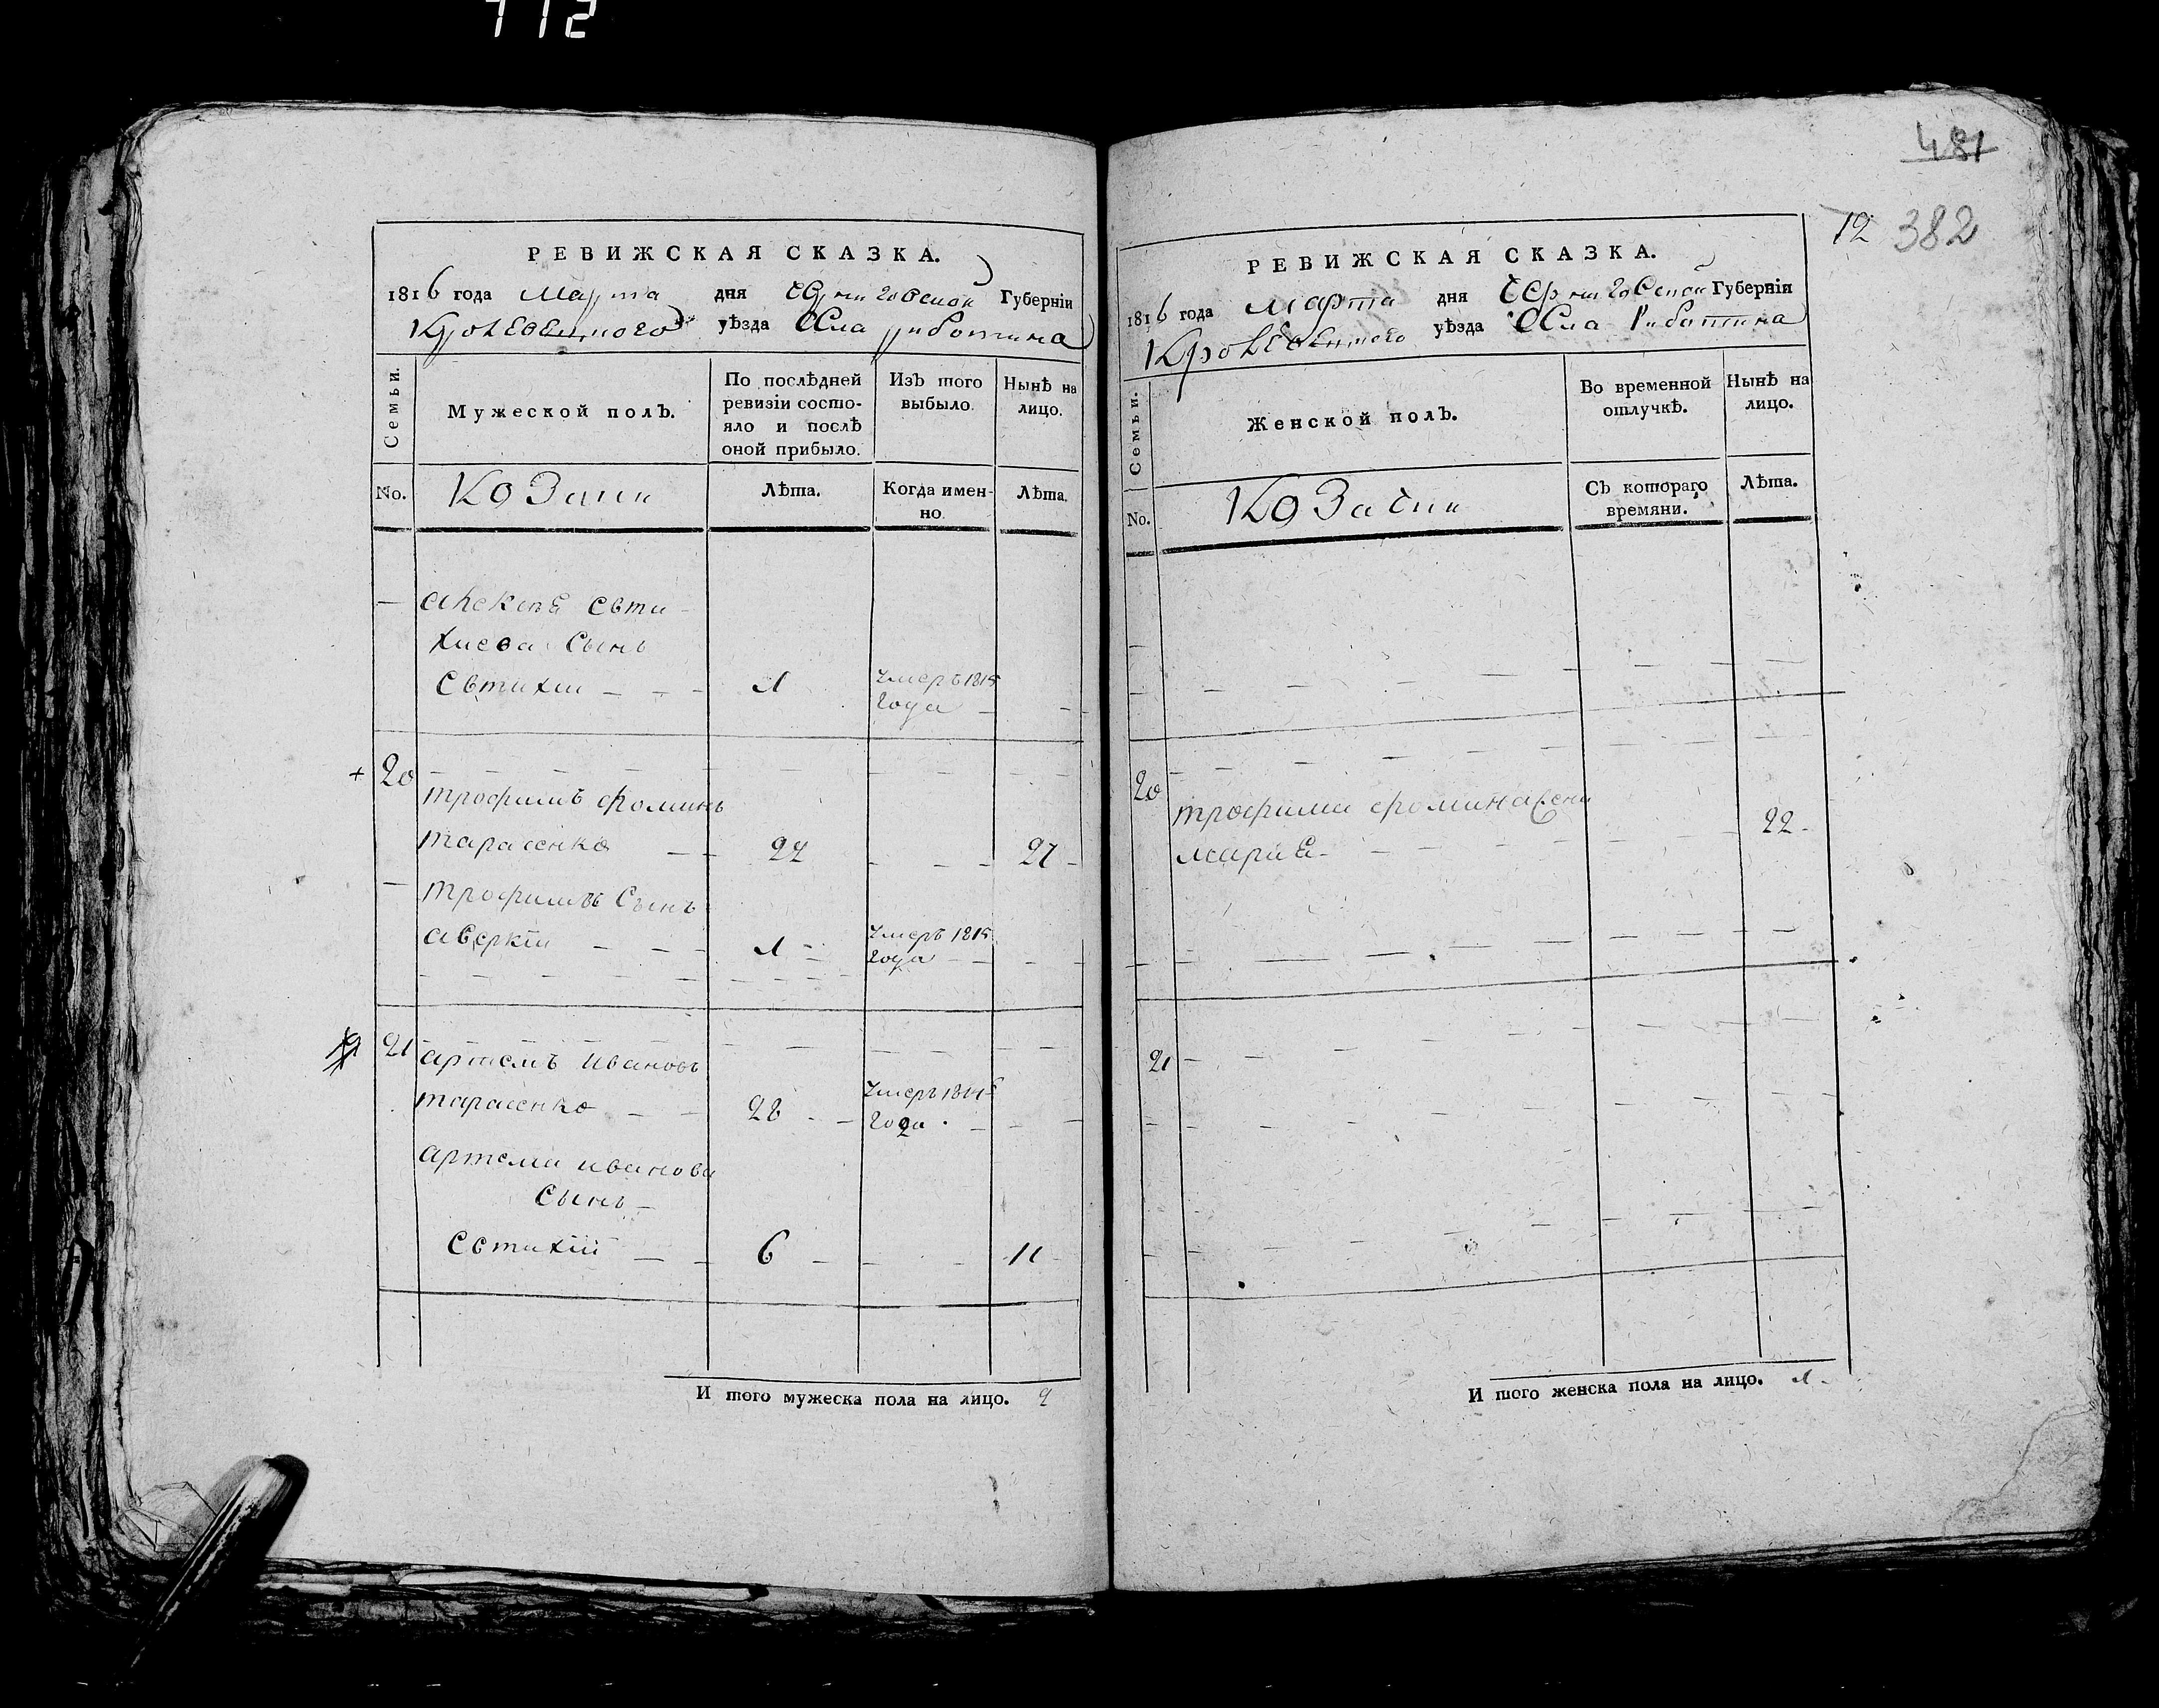 112
РЕВИЖСКАЯ СКАЗКА.
1816 года Марта дня Черниговской Губерніи
Кролевецкого уѣзда Села Риботина
Семьи.
Мужеской полъ.
По послѣдней ревизіи состо-
яло и послѣ
оной прибыло.
Изъ того
выбыло.
Нынѣ на
лицо.
No.
Козаки
Лѣта.
Когда имен-
но.
Лѣта.
— Алексѣя Евти-
хиева Сынъ
Евтихии — — — 1 Умеръ 1815
года — —
+ 20
трофимъ фоминъ
тарасенко — — 22 — — — 27 —
— трофимовъ Сынъ
аверкіи — — — 1 — Умеръ 1815
года — — — —
21 артемъ Ивановъ
тарасенко — — 28 — — Умеръ 1814
года — — —
артема иванова
Сынъ —
Евтихіи — — 6 — — — 11 —
И того мужеска пола на лицо. 2
481
12 382
РЕВИЖСКАЯ СКАЗКА.
1816 года Марта дня Черниговской Губерніи
Кролевецкого уѣзда Села Риботина
Семьи.
Женской полъ.
Во временной
отлучкѣ.
Нынѣ на
лицо.
No.
Козачки
Съ котораго
времяни.
Лѣта.
20
трофима фомина жена
мария — 22 —
21
И того женска пола на лицо. 1 —